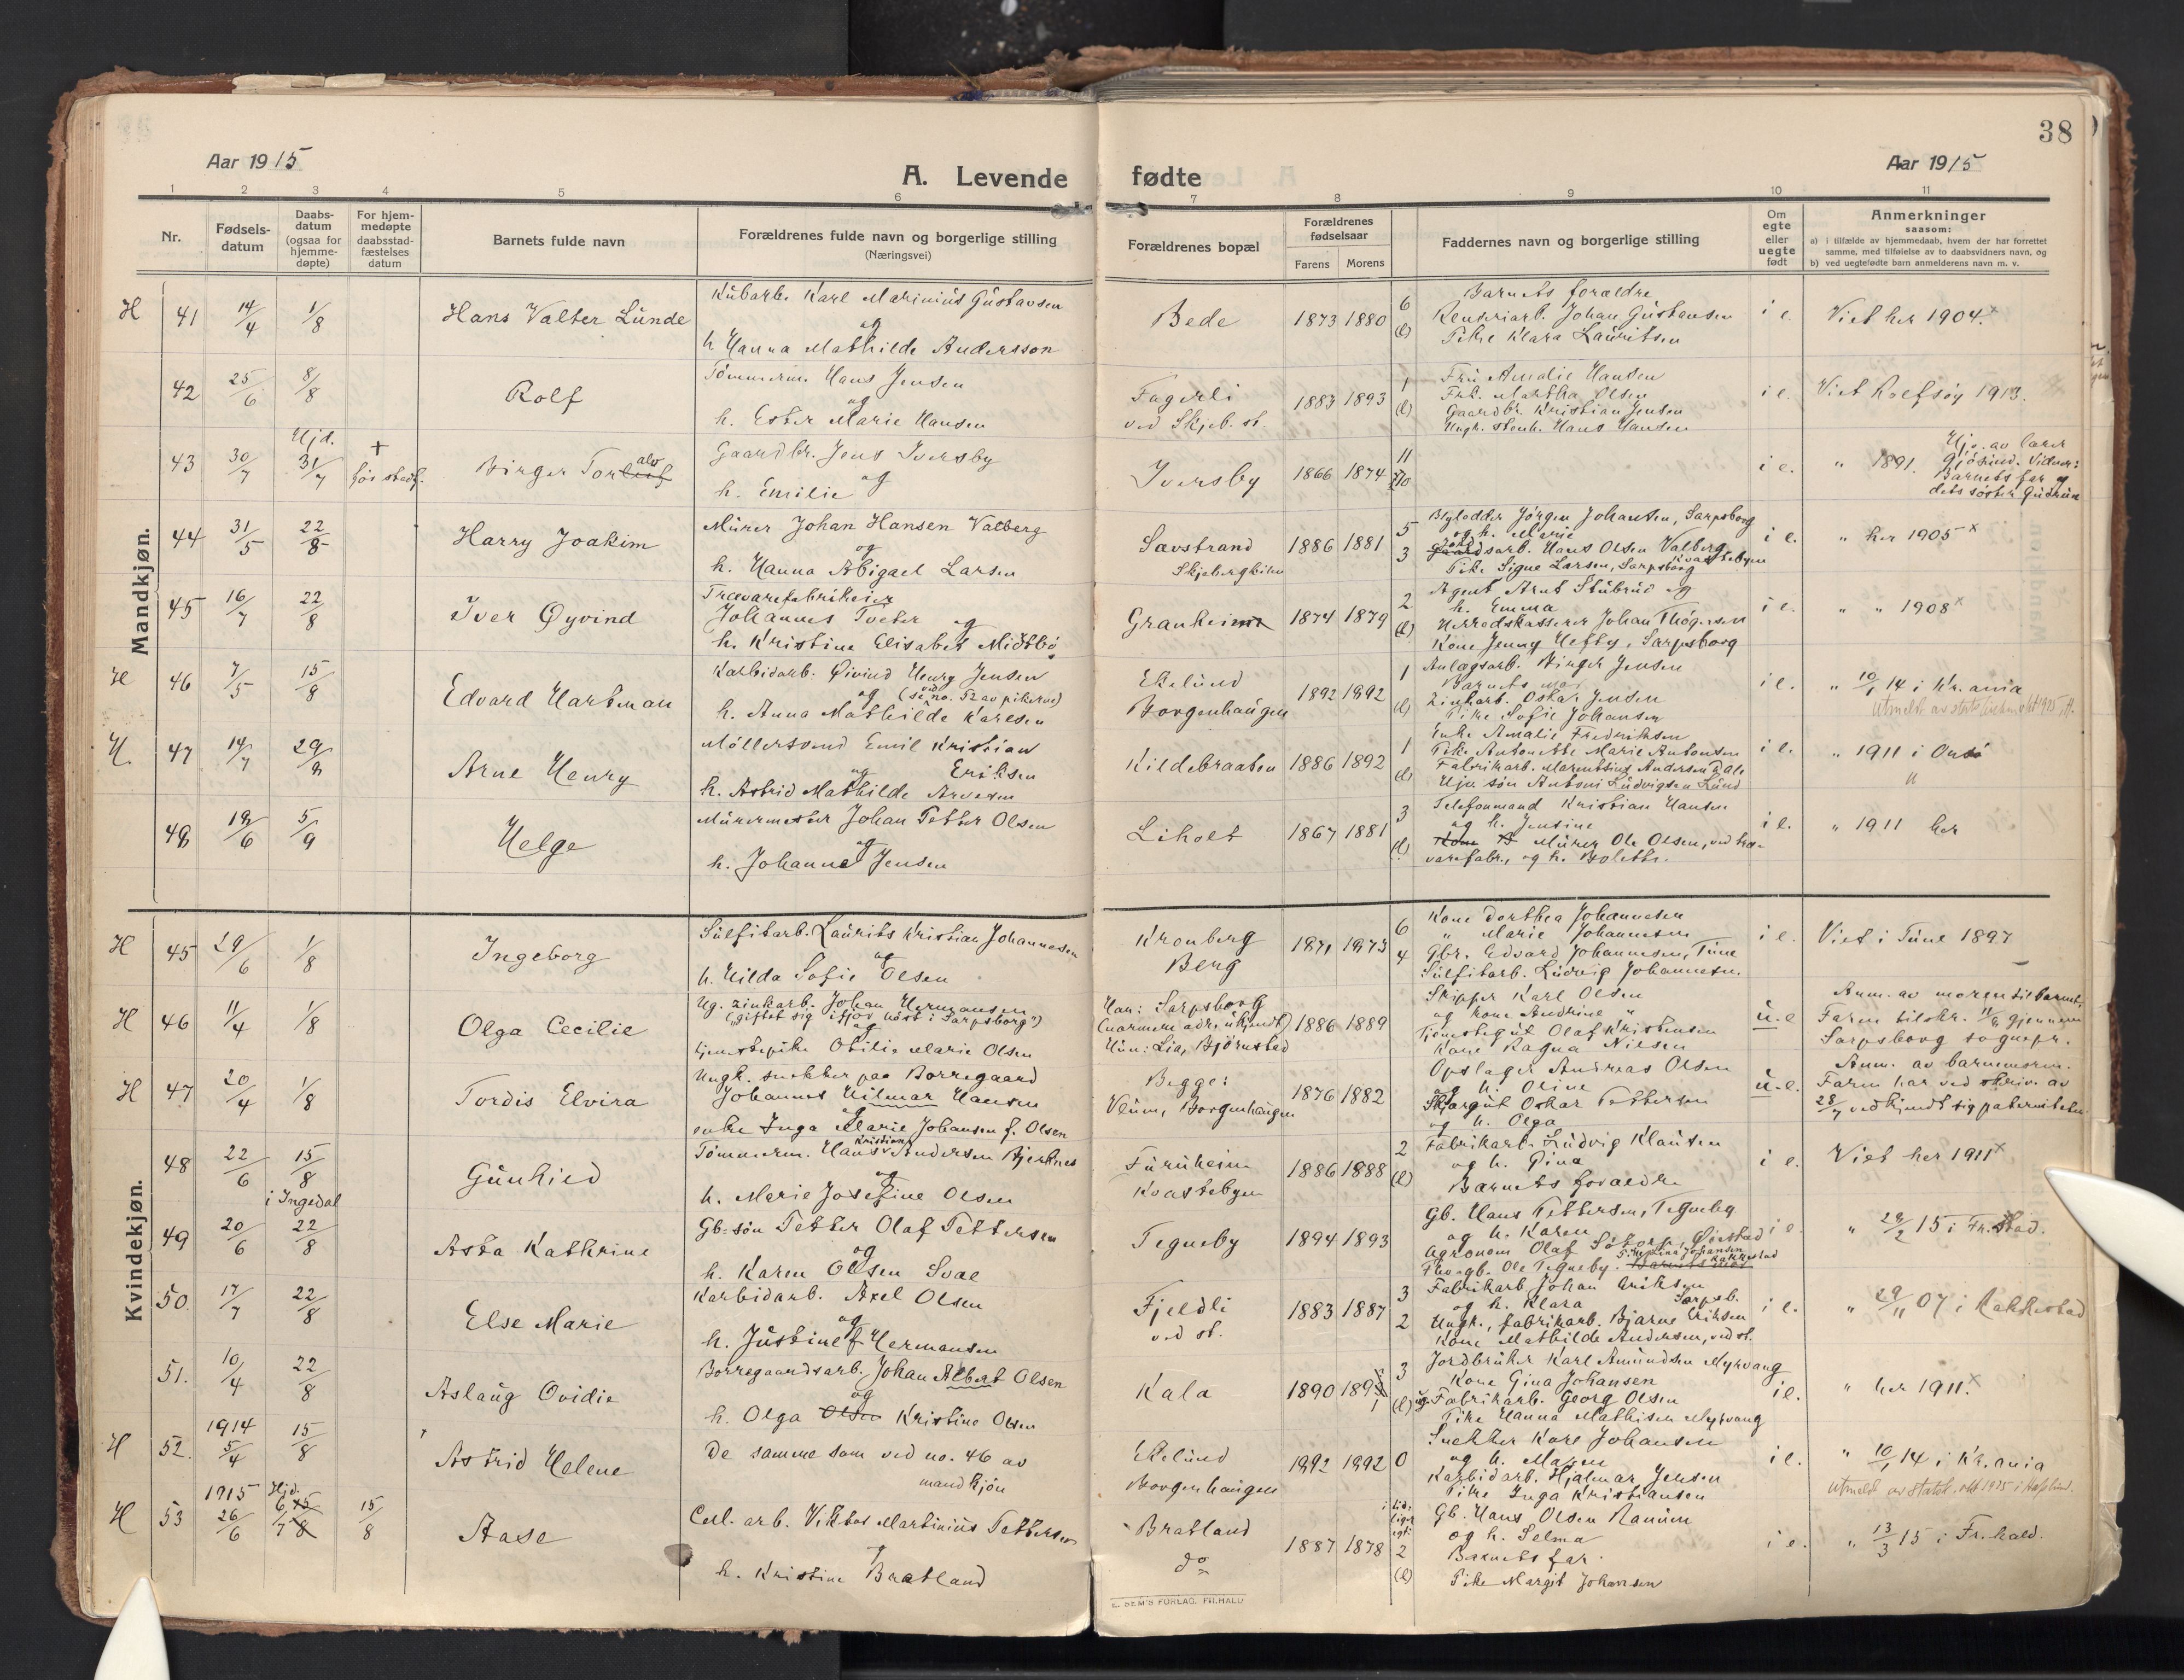 38
Aar 1915
A. Levende fødte
Aar 1915
1 2 3 4 5 6 7 8 9 10 11
Nr.
Fødsels-
datum
Daabs-
datum
(ogsaa for
hjemme-
døpte)
For hjem-
medøpte
daabsstad-
fæstelses
datum
Barnets fulde navn
Forældrenes fulde navn og borgerlige stilling
(Næringsvei)
Forældrenes bopæl
Forældrenes
fødselsaar
Farens Morens
Faddernes navn og borgerlige stilling
Om
egte
eller
uegte
født
Anmerkninger
saasom:
a) i tilfælde av hjemmedaab, hvem der har forrettet
samme, med tilføielse av to daabsvidners navn, og
b) ved uegtefødte barn anmelderens navn m. v.
Mandkjøn.
H 41 14/4 1/8 Hans Valter Lunde
Kubarb. Karl Marinius Gustavsen
og
h. Hanna Mathilde Andersson
Bede 1873 1880 6 (l)
Barnets forældre
Johan Gustavsen
Pike Klara Lauritsen
i e. Viet her 1904 x
42 25/6 8/8 Rolf
Tömmerm. Hans Jensen
og
h. Ester Marie Hansen
Fagerli
ved Skjeb. st.
1883 1893 1 (l)
Fru Amalie Hansen
Frk. Martha Olsen
Gaardbr. Kristian Jensen
Ungk. stenh. Hans Hansen
i e. Viet Rolfsøy 1913.
43 30/7 Hjd. 31/7 + før stadf. Birger Torleif alv
Gaardbr. Jens Iversby
og
h. Emilie
Iversby 1866 1874 11 10
i e. " 1891.
Hjd. av lærer
Gjøsund. Vidner:
Barnets far og
dets søster Gudrun
44 31/5 22/8 Harry Joakim
Murer Johan Hansen Valberg
og
h. Hanna Abigael Larsen
Savstrand
Skjebergkilen
1886 1881 5 3
Jörgen Johansen, Sarpsborg
og h. Marie
Hans Olsen Valberg,
Pike Signe Larsen, Sarpsborg
i e. " her 1905 x
45 16/7 22/8 Iver Øyvind
Trævarefabrikeier
Johannes Tveter
og
h. Kristine Elisabet Midtbö
Granheim 1874 1879 2 (l)
Agent Arnt Stubrud og
h. Emma
Herredskasserer Johan Thögersen
Kone Jenny Hefty, Sarpsborg
i e. " " 1908 x
H 46 7/5 15/8 Edvard Hartman
Karbidarb. Øivind Henry Jensen
og (se no. 52 av pikerne)
h. Anna Mathilde Karlsen
Ekelund
Borgenhaugen
1892 1892 1 (l)
Anlægsarb. Birger Jensen
Barnets mor
Zinkarb. Oskar Jensen
Pike Sofie Johansen
i e. " 10/1 14 i Kr.ania
H 47 14/7 29/8 Arne Henry
Möllersvend Emil Kristian
og Eriksen
h. Astrid Mathilde Arvesen
Kildebraaten 1886 1892 1 (l)
Enke Amalie Fredriksen
Pike Antonette Marie Antonsen
Fabrikarb. Andersen
Antoni Ludvigsen Lund
i e. " 1911 i Onsö
48 19/6 5/9 Helge
Murermester Johan Petter Olsen
og
h. Johanne Jensen
Liholt 1867 1881 3 (l)
Telefonmand Kristian Hansen
og h. Jensine
Murer Ole Olsen, ved træ-
varefabr., og h. Bolette.
i e. " 1911 her
Kvindekjøn.
H 45 29/6 1/8 Ingeborg
Sulfitarb. Laurits Kristian Johannesen
og
h. Hilda Sofie Olsen
Kronberg
Berg
1871 1873 6 4
Kone Dorthea Johannesen
" Marie Johannesen
Gbr. Edvard Johannesen, Tune
Sulfitarb. Ludvig Johannesen.
i e. Viet i Tune 1897
H 46 11/4 1/8 Olga Cecilie
Ug. zinkarb. Johan Hermansen
("giftet sig ifjor høst i Sarpsborg")
og
tjenestepike Otilie Marie Olsen
Han: Sarpsborg
(nærmere adr. ukjendt)
Hun: Lia, Bjørnstad
1886 1889
Skipper Karl Olsen
og kone Andrine "
Tjenestegut Olaf Kristensen
Kone Ragna Nilsen
u.e.
Anm. av moren til barnet.
Faren tilskr. gjennem
Sarpsborg sognepr.
H 47 20/4 1/8 Tordis Elvira
Ungk. snekker paa Borregaard
Johannes Hilmar Hansen
og
enke Inga Marie Johansen f. Olsen
Begge:
Vlum, Borgenhaugen
1876 1882
Opslager Andreas Olsen
og h. Oline
Oskar Pettersen
og h. Olga
u.e.
Anm. av barnemoren.
Faren har ved skriv. av
28/7 vedkjendt sig paterniteten
48 22/6 15/8 i Ingedal Gunhied
Tömmerm. Hans Kristian Andersen Bjerknes
og
h. Marie Josefine Olsen
Furuheim
Kvastebyen
1886 1888 2 (l)
Fabrikarb. Ludvig Klausen
og h. Dina
Barnets forældre
i e. Viet her 1911 x
49 20/6 22/8 Asta Kathrine
Gb-søn Petter Olaf Pettersen
og
h. Karen Olsen Svae
Tegneby 1894 1893
Gb. Hans Pettersen, Tegneby
og h. Karen
Agronom Olaf
Ole Tegneby.
i e. " 29/2 15 i Fr.stad.
50. 17/7 22/8 Else Marie
Karbidarb. Axel Olsen
og
h. Justine f. Hermansen
Fjeldli
ved st.
1883 1887 3 2
Fabrikarb. Johan Eriksen
og h. Klara Sarpsb.
Ungk., fabrikarb. Bjarne Eriksen
Kone Mathilde Andersen, ved st.
i e. " 29/11 07 i Rakkestad
51. 10/4 22/8 Aslaug Ovidie
Borregaardsarb. Johan Albert Olsen
og
h. Olga Olsen Kristine Olsen
Kala 1890 1891 3 (l)
Jordbruker Karl Amundsen Myrvang
Kone Gina Johansen
ug. Fabrikarb. Georg Olsen
Pike Hanna Mathisen Myrvang
i e. " her 1911. x
H 52. 1914 5/4 15/8 Astrid Helene
De samme som ved no. 46 av
mandkjøn
Ekelund
Borgenhaugen
1892 1892 0
Snekker Karl Johansen
og h. Maren
Karbidarb. Hjalmar Jensen
Pike Inga Kristiansen
i e. " 10/1 14 i Kr.ania
H 53 1915 26/6 Hjd. 6/7 15/8 Aase
Cel. arb. Viktor Martinius Pettersen
og
h. Kristine Bratland
Bratland
do
1887 1878 2 (l)
Gb. Hans Olsen Ranum
og h. Selma
Barnets far.
Pike Margit Johansen
i e. " 13/3 15 i Fr.hald.
E. SEM'S FORLAG. FR.HALD